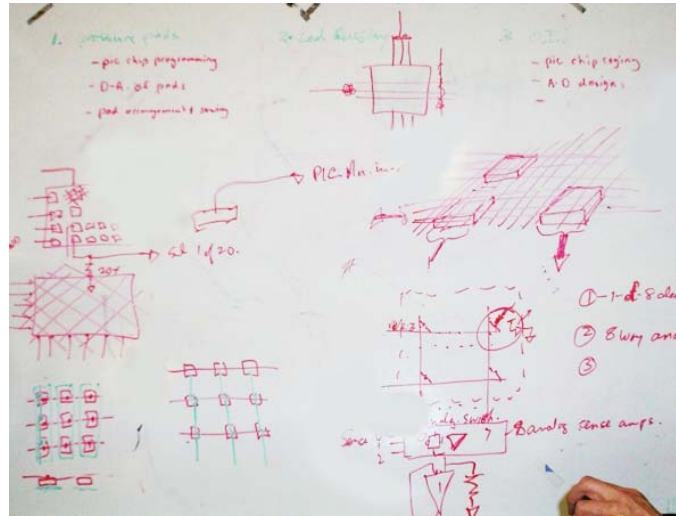 1. pressure pads
- pic chip programming
- D-A. of pads
- pad arrangement sewing
2. Led
3.
- pic chip
- A.D design
-
PIC An. in.
Sel 1 of 20.
① - 1-of-8
② 8 way
③
8 analog sense amps.
Sense
2
7
1